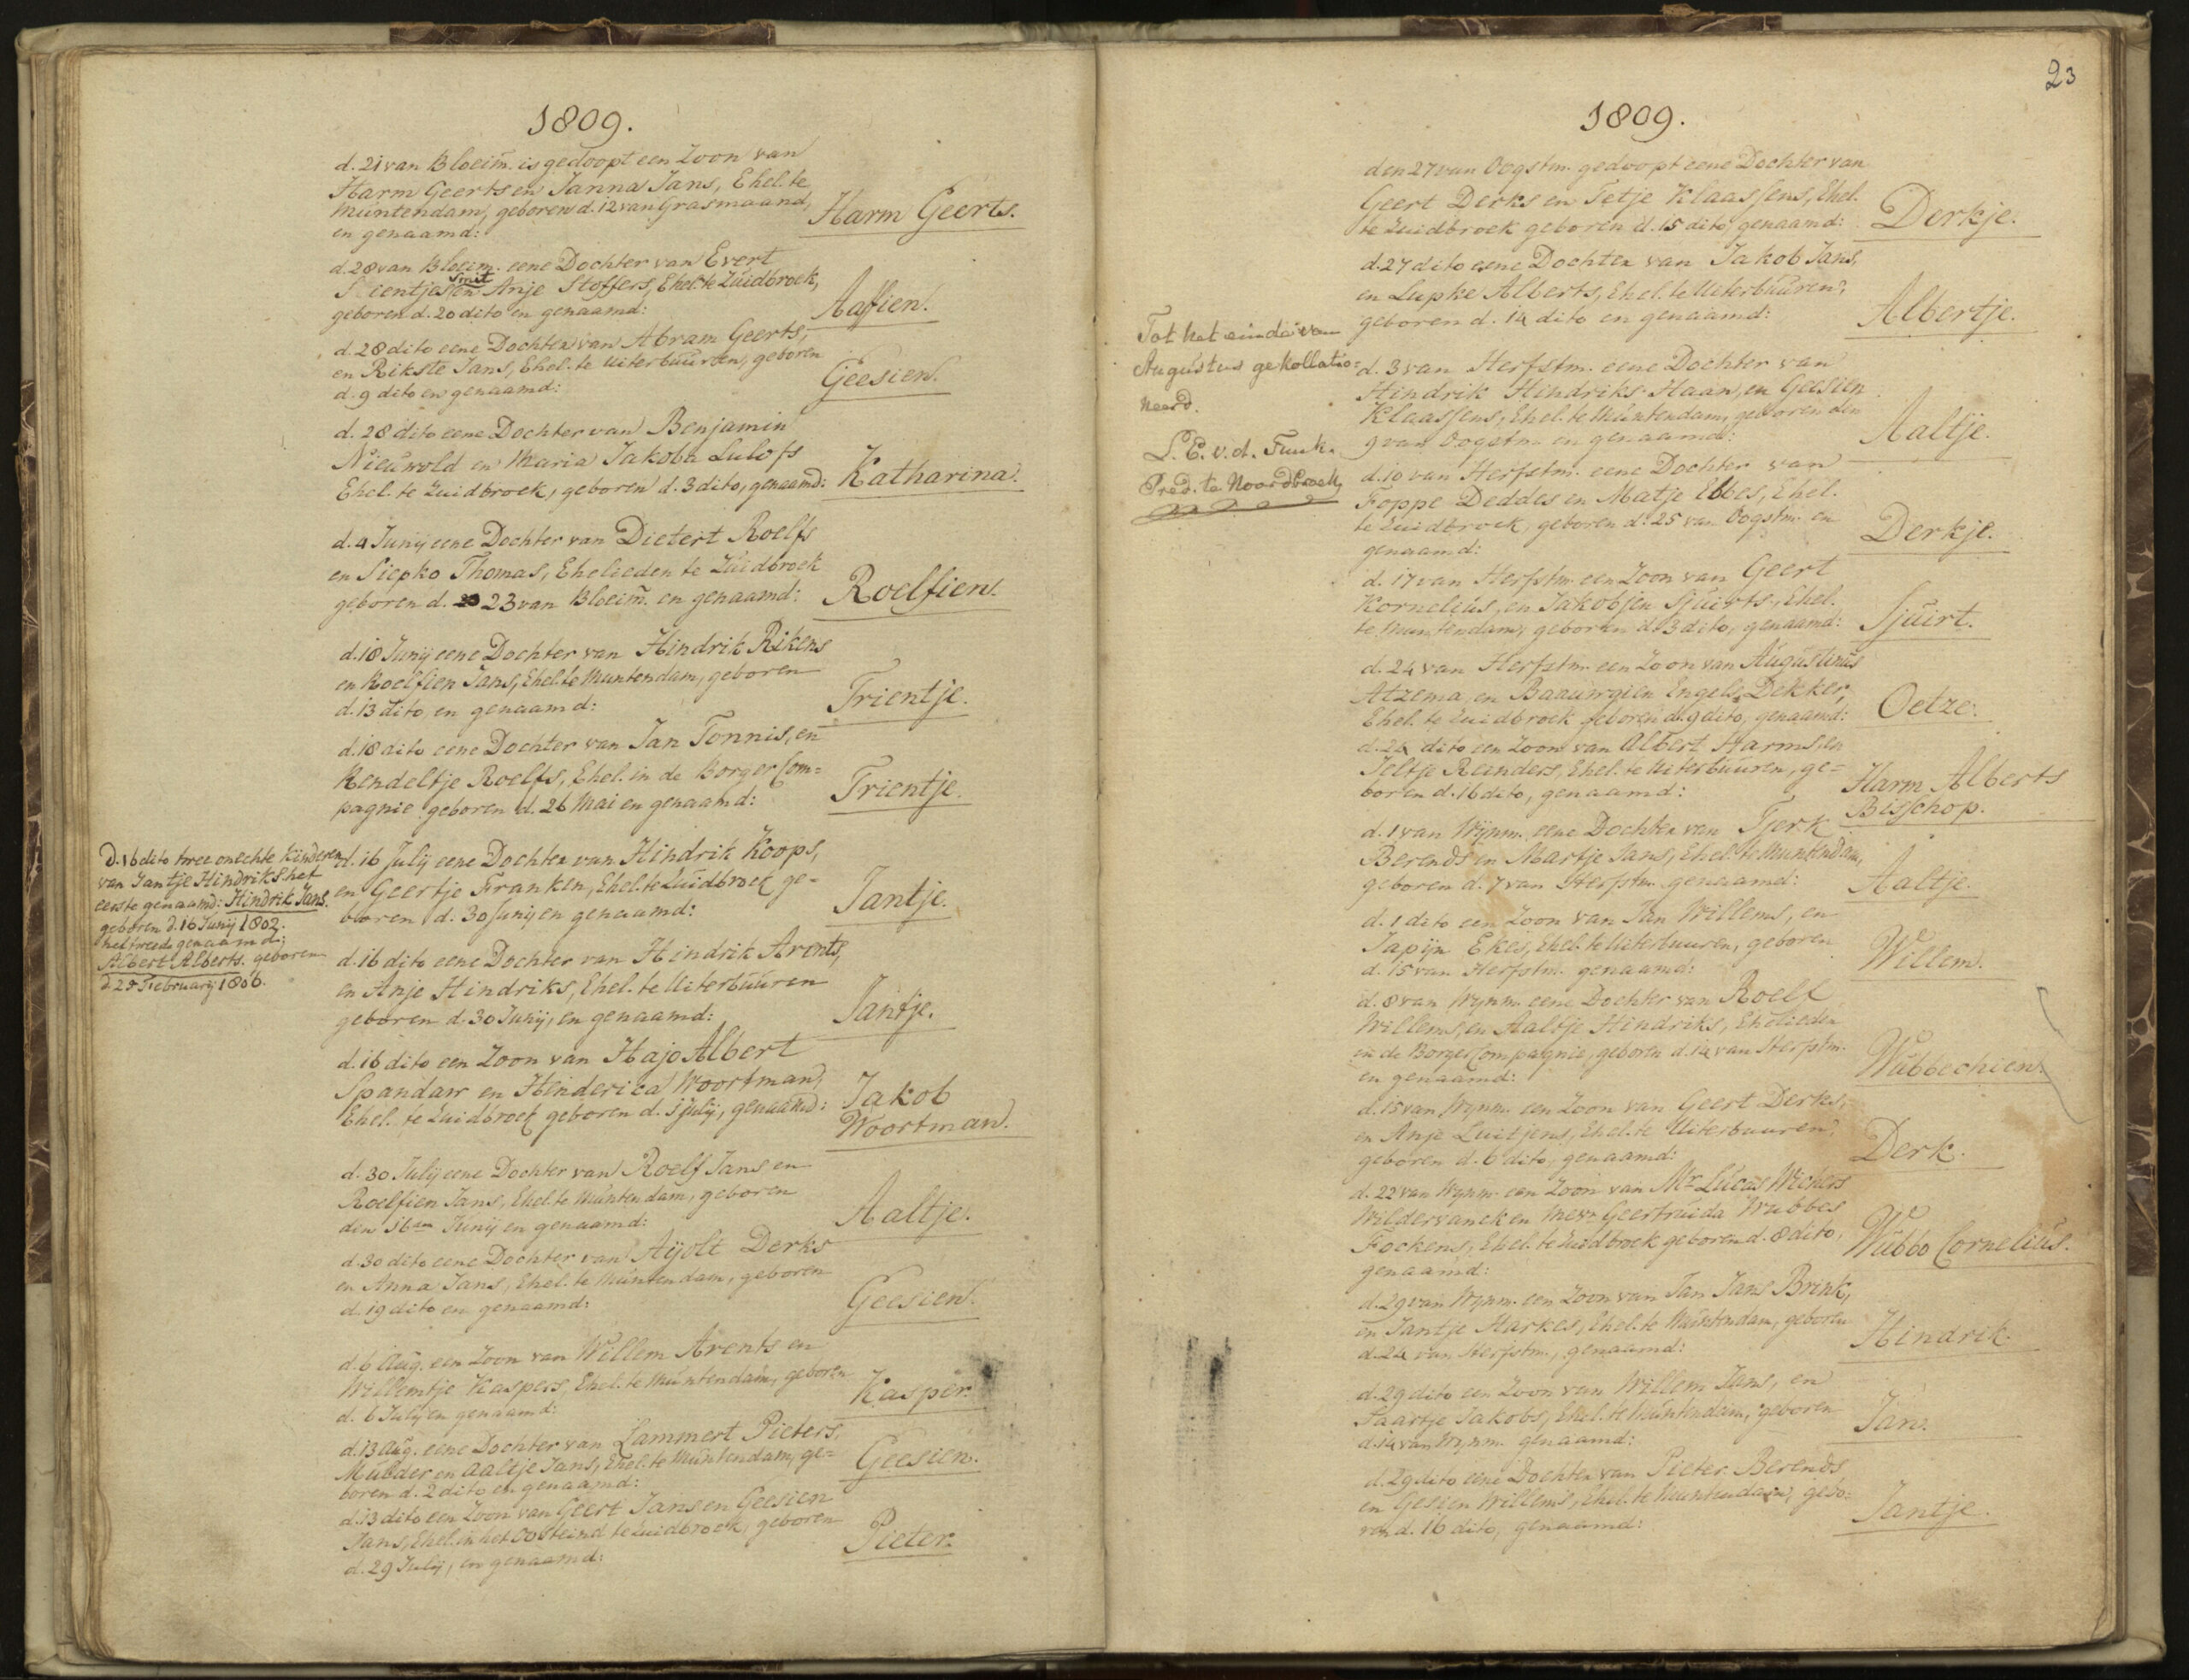 1809.
d. 21 van Bloeim. is gedoopt een Zoon van
Harm Geerts en Janna Jans, Ehel. te
Muntendam, geboren d. 12 van Grasmaand,
en genaamd:
Harm Geerts.
d. 28 van Bloeim. eene Dochter van Evert
Smit
en Anje Stoffers, Ehel. te Zuidbroek,
geboren d. 20 dito en genaamd:
Aaffien.
d. 28 dito eene Dochter van Abram Geerts,
en Rikste Jans, Ehel. te Uiterbuuren, geboren
d. 9 dito en genaamd:
Geesien.
d. 28 dito eene Dochter van Benjamin
Nieuwold en Maria Jakoba Lulofs
Ehel. te Zuidbroek, geboren d. 3 dito, genaamd:
Katharina.
d. 4 Junij eene Dochter van Dietert Roelfs
en Siepko Thomas, Ehelieden te Zuidbroek
geboren d. 23 van Bloeim. en genaamd:
Roelfien.
d. 18 Junij eene Dochter van Hindrik Rikens
en Roelfien Jans, Ehel. te Muntendam, geboren
d. 13 dito, en genaamd:
Trientje.
d. 18 dito eene Dochter van Jan Tonnis, en
Rendeltje Roelfs, Ehel. in de Borger Com=
pagnie geboren d. 26 Mai en genaamd:
Trientje.
D. 16 dito twee onechte Kinderen
van Jantje Hindriks het
eerste genaamd: Hindrik Jans.
geboren d. 16 Junij 1802.
het tweede genaamd:
Albert Alberts. geboren
d. 28 Februarij 1806.
d. 16 Julij eene Dochter van Hindrik Koops,
en Geertje Franken, Ehel. te Zuidbroek ge=
boren d. 30 Junij en genaamd:
Jantje.
d. 16 dito eene Dochter van Hindrik Arents,
en Anje Hindriks, Ehel. te Uiterbuuren
geboren d. 30 Junij, en genaamd:
Jantje.
d. 16 dito een Zoon van Hajo Albert
Spandaw en Henderica Woortman,
Ehel. te Zuidbroek geboren d. 1 Julij, genaamd:
Jakob
Woortman.
d. 30 Julij eene Dochter van Roelf Jans en
Roelfien Jans, Ehel. te Muntendam, geboren
den 16den Junij en genaamd:
Aaltje.
d. 30 dito eene Dochter van Aijolt Derks
en Anna Jans, Ehel. te Muntendam, geboren
d. 19 dito en genaamd:
Geesien.
d. 6 Aug. een Zoon van Willem Arents en
Willemtje Kaspers, Ehel. te Muntendam, geboren
d. 6 Julij en genaamd:
Kasper.
d. 13 Aug. eene Dochter van Lammert Pieters,
Mulder en Aaltje Jans, Ehel. te Muntendam, ge=
boren d. 2 dito en genaamd:
Geesien.
d. 13 dito een Zoon van Geert Jans en Geesien
Jans, Ehel. in het Oosteind te Zuidbroek, geboren
d. 29 Julij, en genaamd:
Pieter.
23
1809.
den 27 van Oogstm. gedoopt eene Dochter van
Geert Derks en Tetje Klaassens, Ehel.
te Zuidbroek geboren d. 15 dito, genaamd:
Derkje.
d. 27 dito eene Dochter van Jakob Jans,
en Lupke Alberts, Ehel. te Uiterbuuren,
geboren d. 14 dito en genaamd:
Albertje.
Tot het einde van
Augustus gekollatio=
neerd.
L. E. v. d. Tuuk.
Pred. te Noordbroek
d. 3 van Herfstm. eene Dochter van
Hindrik Hindriks Haan, en Geesien
Klaassens, Ehel. te Muntendam, geboren den
9 van Oogstm. en genaamd:
Aaltje.
d. 10 van Herfstm. eene Dochter van
Foppe Deddes en Matje Ebbes, Ehel.
te Zuidbroek, geboren d. 25 van Oogstm. en
genaamd:
Derkje.
d. 17 van Herfstm. een Zoon van Geert
Kornelius, en Jakobjen Sjuirts, Ehel.
te Muntendam, geboren d. 3 dito, genaamd:
Sjuirt.
d. 24 van Herfstm. een Zoon van Augustinus
Atzema, en Baauwgien Engels Dekker,
Ehel. te Zuidbroek geboren d. 9 dito, genaamd:
Oetze.
d. 24 dito een Zoon van Albert Harms, en
Jeltje Reinders, Ehel. te Uiterbuuren, ge=
boren d. 16 dito, genaamd:
Harm Alberts
Bisschop.
d. 1 van Wijnm. eene Dochter van Tjerk
Berends en Martje Jans, Ehel. te Muntendam,
geboren d. 7 van Herfstm. genaamd:
Aaltje.
d. 1 dito een Zoon van Jan Willems, en
Tapijn Ekes, Ehel. te Uiterbuuren, geboren
d. 15 van Herfstm. genaamd:
Willem.
d. 8 van Wijnm. eene Dochter van Roelf
Willems, en Aaltje Hindriks, Ehelieden
in de Borger Compagnie, geboren d. 14 van Herfstm.
en genaamd:
Wubbechien.
d. 15 van Wijnm. een Zoon van Geert Derks,
en Anje Luitjens, Ehel. te Uiterbuuren,
geboren d. 6 dito, genaamd:
Derk.
d. 22 van Wijnm. een Zoon van Mr Lucas Wichers
Wildervanck en Mevr Geertruida Wubbes
Fockens, Ehel. te Zuidbroek geboren d. 8 dito,
genaamd:
Wubbo Cornelius.
d. 29 van Wijnm. een Zoon van Jan Jans Brink,
en Jantje Harkes, Ehel. te Muntendam, geboren
d. 24 van Herfstm., genaamd:
Hindrik.
d. 29 dito een Zoon van Willem Jans, en
Saartje Jakobs, Ehel. te Muntendam, geboren
d. 14 van Wijnm. genaamd:
Jan.
d. 29 dito eene Dochter van Pieter Berends
en Gesien Willems, Ehel. te Muntendam, gebo=
ren d. 16 dito, genaamd:
Jantje.